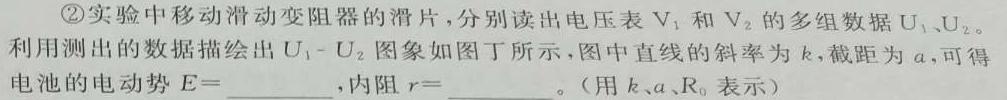 ②实验中移动滑动变阻器的滑片,分别读出电压表 V₁ 和 V₂ 的多组数据 U₁、U₂。
利用测出的数据描绘出 U₁-U₂ 图象如图丁所示,图中直线的斜率为 k,截距为 a,可得
电池的电动势 E=________,内阻 r=________。(用 k、a、R₀ 表示)